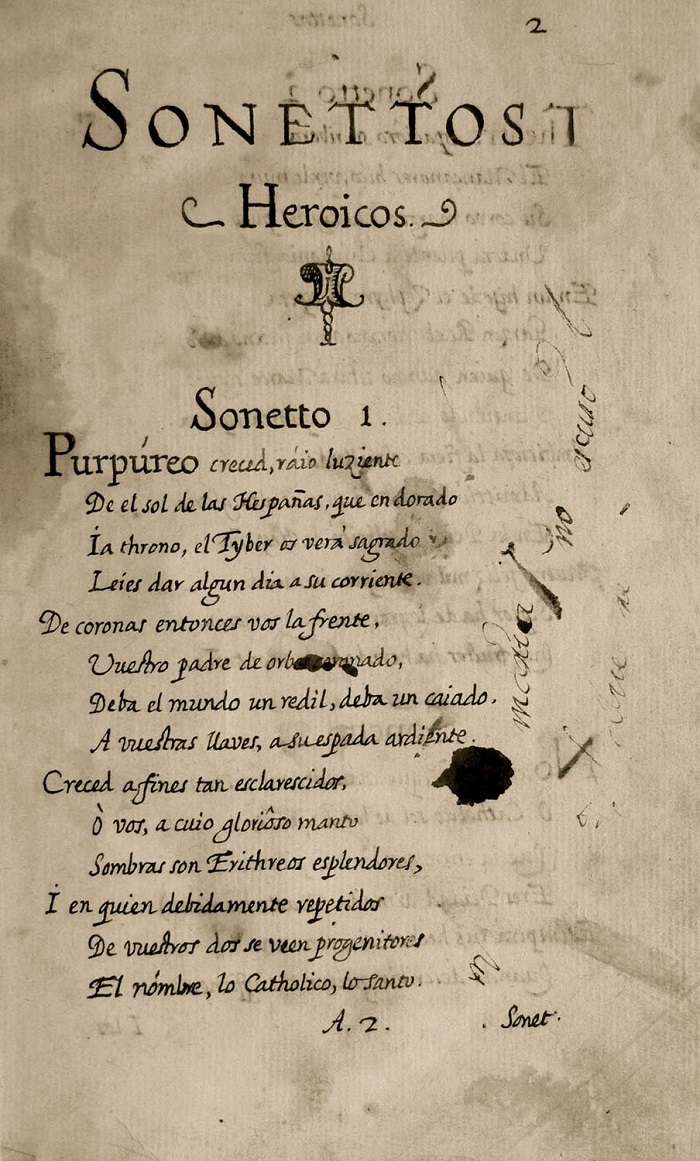 2
SONETTOS
Heroicos.
Sonetto 1.
Purpúreo creced, ráio luziente
De el sol de las Hespañas, que en dorado
Ía throno, el Tyber os verá sagrado
Leíes dar algun dia a su corriente.
De coronas entonces vos la frente,
Vuestro padre de orbes coronado,
Deba el mundo un redil, deba un caiado.
A vuestras llaves, a su espada ardiente.
Creced a fines tan esclarescidos,
ò vos, a cuio glorióso manto
Sombras son Erithreos esplendores,
Í en quien debidamente repetidos
De vuestros dos se veen progenitores
El nómbre, lo Catholico, lo santo.
A. 2. . Sonet.
no